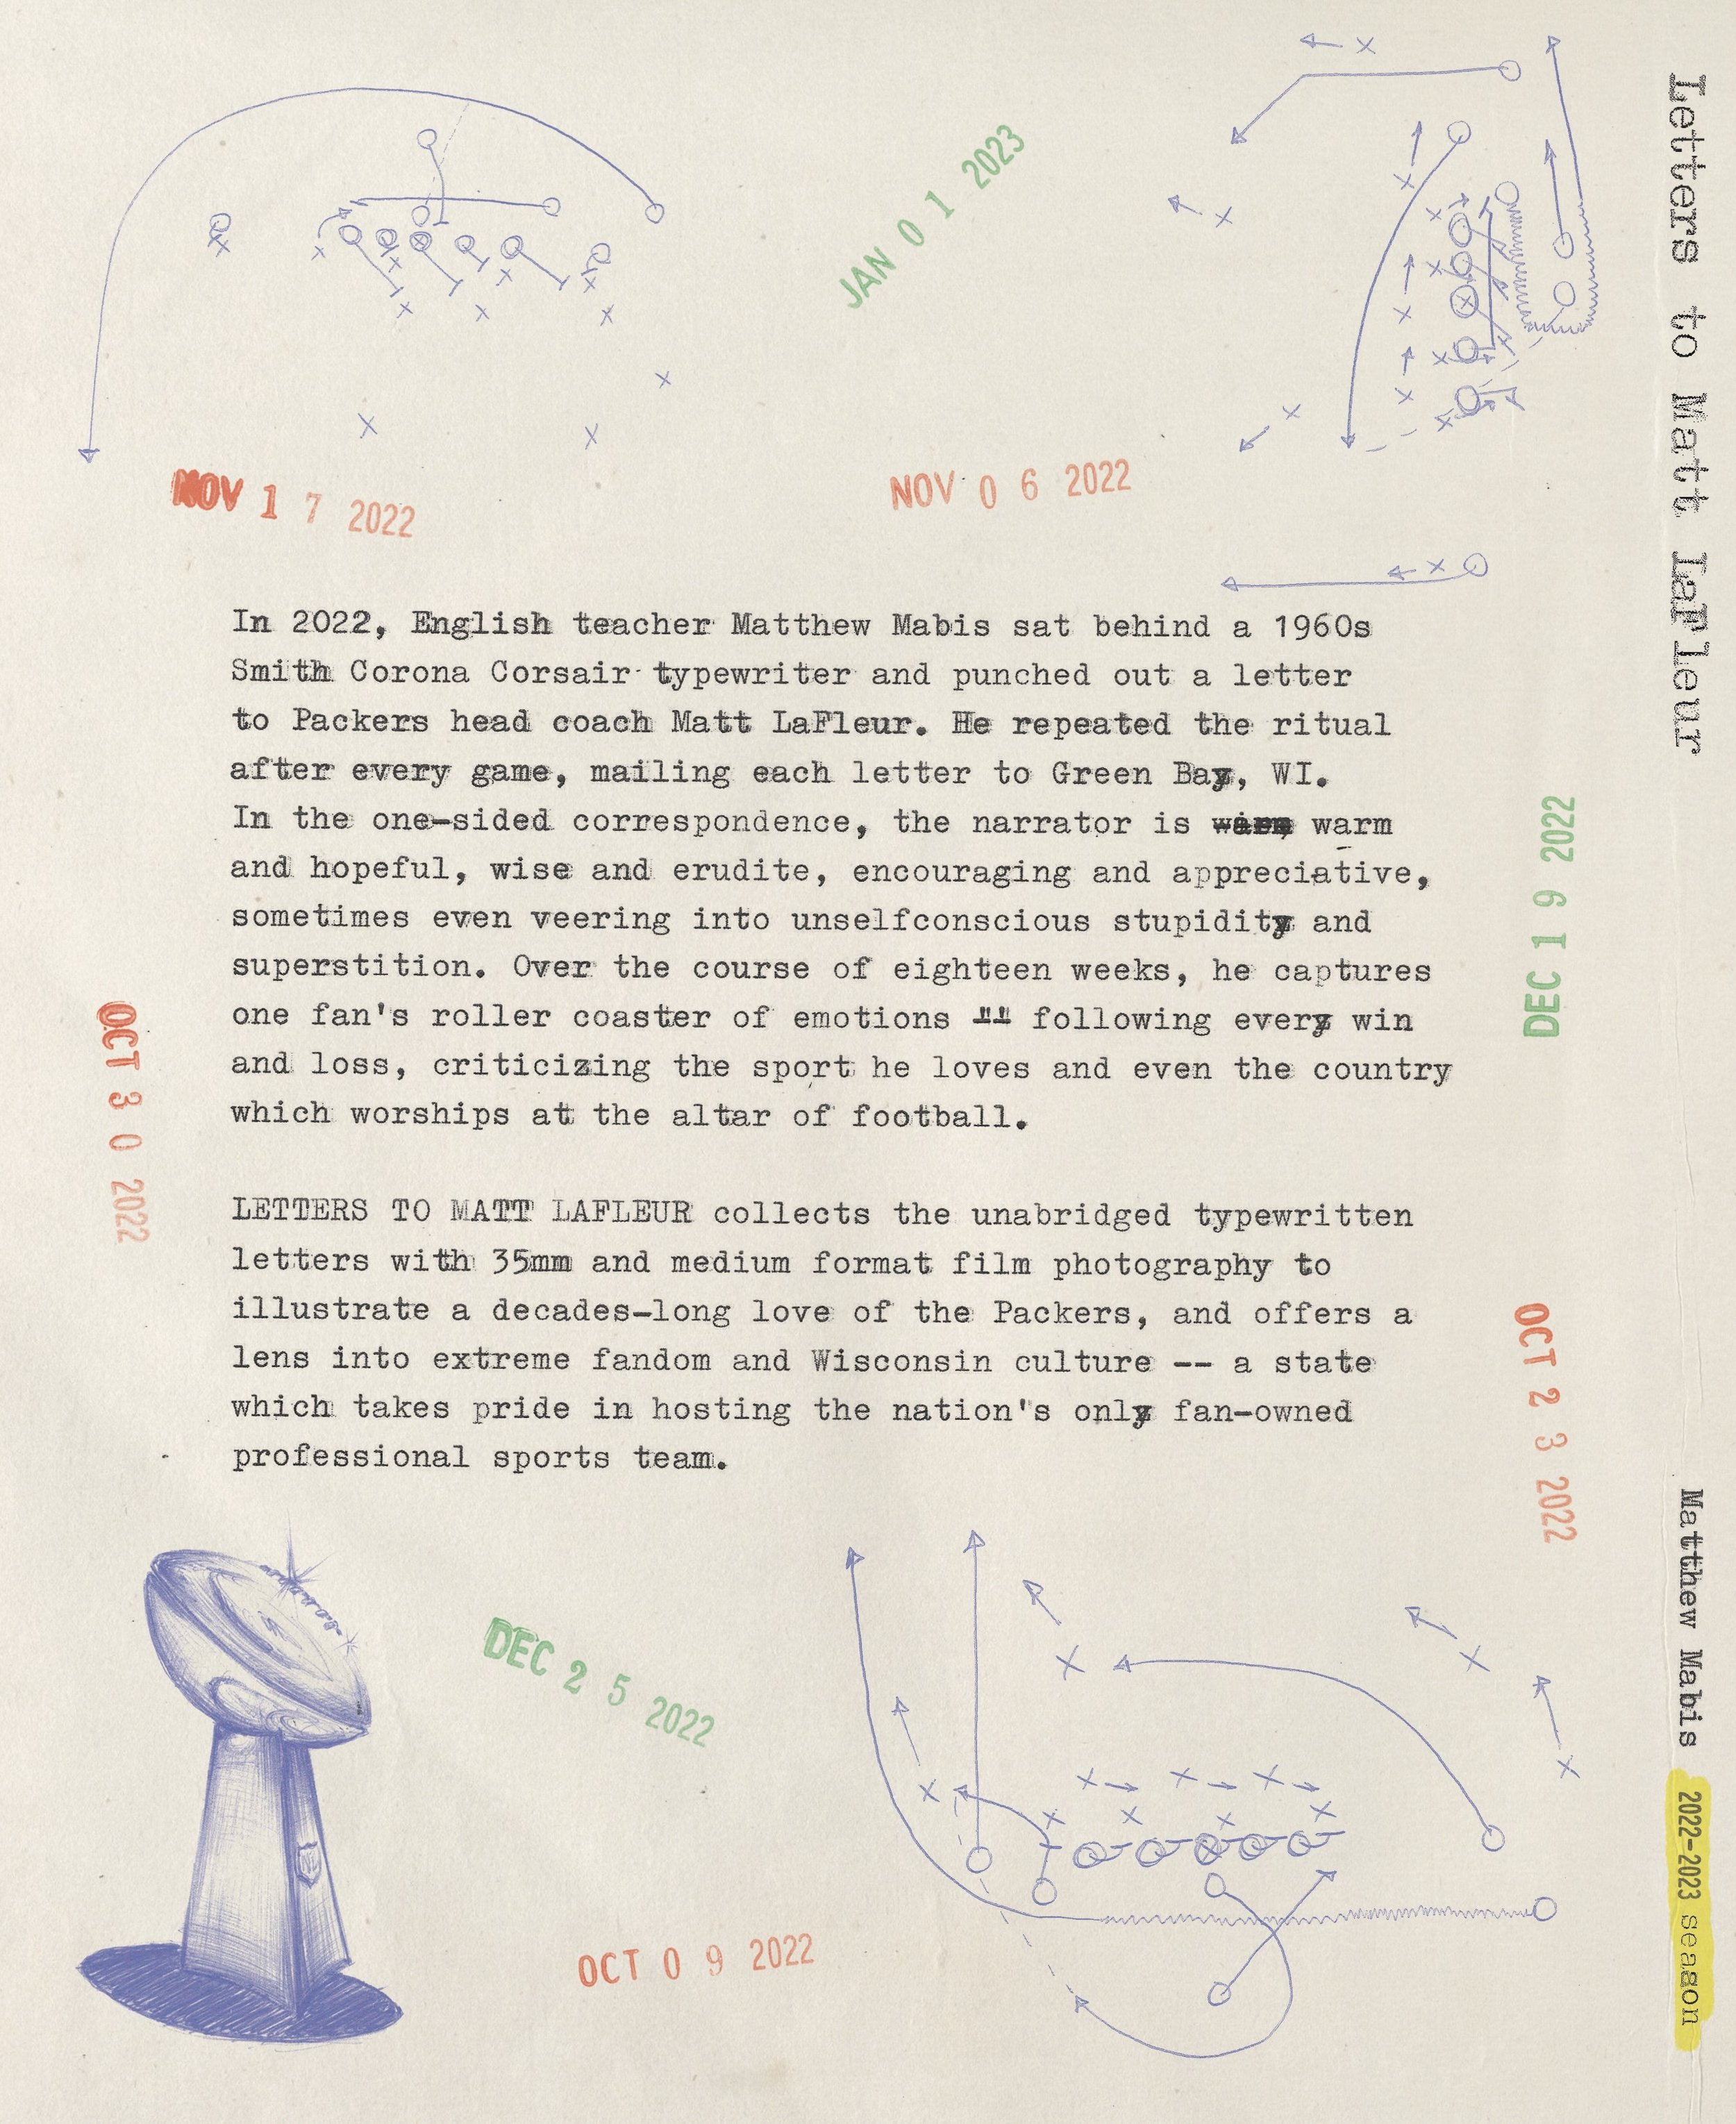 JAN 0 1 2023
NOV 1 7 2022
NOV 0 6 2022
In 2022, English teacher Matthew Mabis sat behind a 1960s
Smith Corona Corsair typewriter and punched out a letter
to Packers head coach Matt LaFleur. He repeated the ritual
after every game, mailing each letter to Green Bay, WI.
In the one-sided correspondence, the narrator is warm
and hopeful, wise and erudite, encouraging and appreciative,
sometimes even veering into unselfconscious stupidity and
superstition. Over the course of eighteen weeks, he captures
one fan's roller coaster of emotions -- following every win
and loss, criticizing the sport he loves and even the country
which worships at the altar of football.
LETTERS TO MATT LAFLEUR collects the unabridged typewritten
letters with 35mm and medium format film photography to
illustrate a decades-long love of the Packers, and offers a
lens into extreme fandom and Wisconsin culture -- a state
which takes pride in hosting the nation's only fan-owned
professional sports team.
OCT 3 0 2022
DEC 1 9 2022
OCT 2 3 2022
DEC 2 5 2022
OCT 0 9 2022
Letters to Matt LaFleur
Matthew Mabis
2022-2023 season